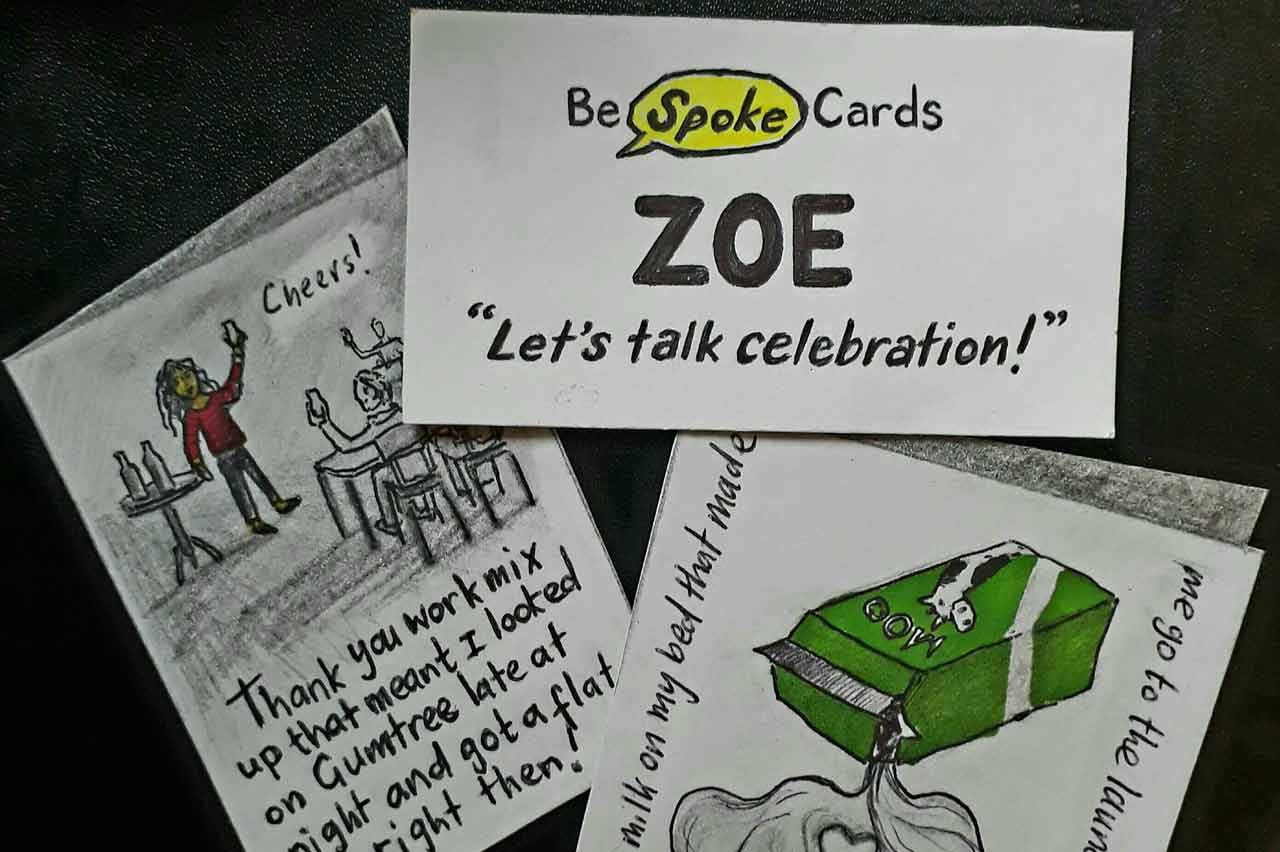 Be Spoke Cards
ZOE
“Let's talk celebration!”
Cheers!
Thank you work mix
up that meant I looked
on Gumtree late at
night and got a flat
right then!
milk on my bed that made
MOO
me go to the